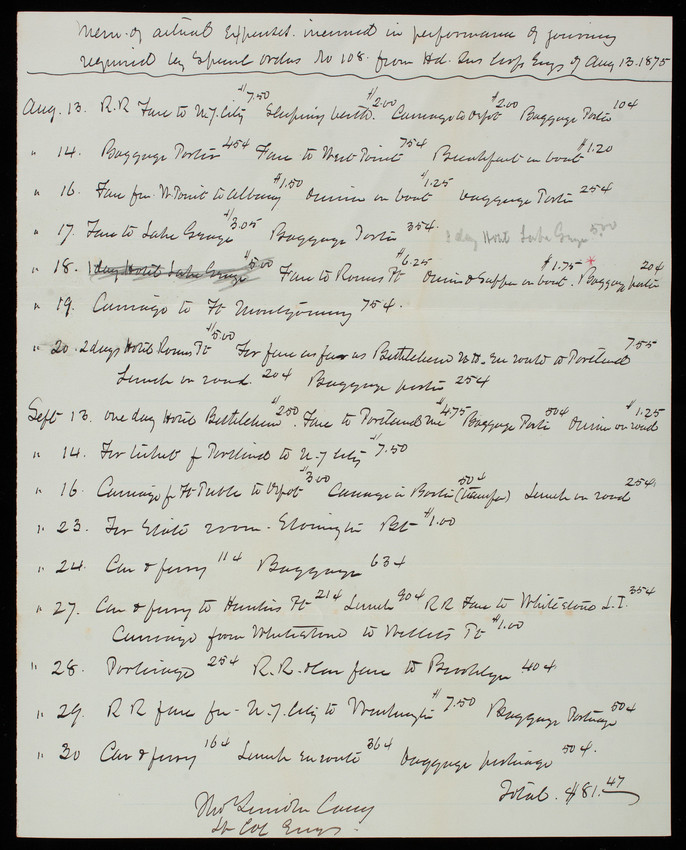 Mem. of actual Expenses incurred in performance of journey
required by Special orders No 108. from Hd. Qrs Corps Engs of Aug 13. 1875
Aug. 13. R.R Fare to N.Y. City $7.50 Sleeping berth. $2.00 Carriage to Depot $2.00 Baggage Porter 10¢
" 14. Baggage Porter 45¢ Fare to West Point 75¢ Breakfast on boat $1.20
" 16. Fare fm W. Point to Albany $1.50 Dinner on boat $1.25 baggage Porter 25¢
" 17. Fare to Lake George $3.05 Baggage Porter 35¢. 1 day Hotel Lake George 5.00
" 18. 1 day Hotel Lake George $5.00 Fare to Rouses Pt $6.25 Dinner & Supper on boat. $1.75 * Baggage porter 20¢
" 19. Carriage to Ft Montgomery 75¢.
" 20. 2 days Hotel Rouses Pt $5.00 For fare as far as Bethlehem N.H. En route to Portland 7.55
Lunch on road. 20¢ Baggage porter 25¢
Sept 13. one day Hotel Bethlehem $2.50. Fare to Portland Me $4.75 Baggage Porter 50¢ Dinner on road $1.25
" 14. For ticket f Portland to N.Y City $7.50
" 16. Carriage f Ft Preble to Depot $3.00 Carriage in Boston (transfer) 50¢ Lunch on road 25¢.
" 23. For State room - Stonington Bt $1.00
" 24. Car & ferry 11¢ Baggage 63¢
" 27. Car & ferry to Hunters Pt 21¢ Lunch 90¢ R R Fare to Whitestone L.I. 35¢
Carriage from Whitestone to Willets Pt $1.00
" 28. Porterage 25¢ R.R. & car fare to Brooklyn 40¢
" 29. R R fare fm - N.Y. City to Washington $7.50 Baggage Porterage 50¢
" 30 Car & ferry 16¢ Lunch en route 36¢ baggage porterage 50¢.
Total. $81.47
Thos Lincoln Casey
Lt Col Engs.